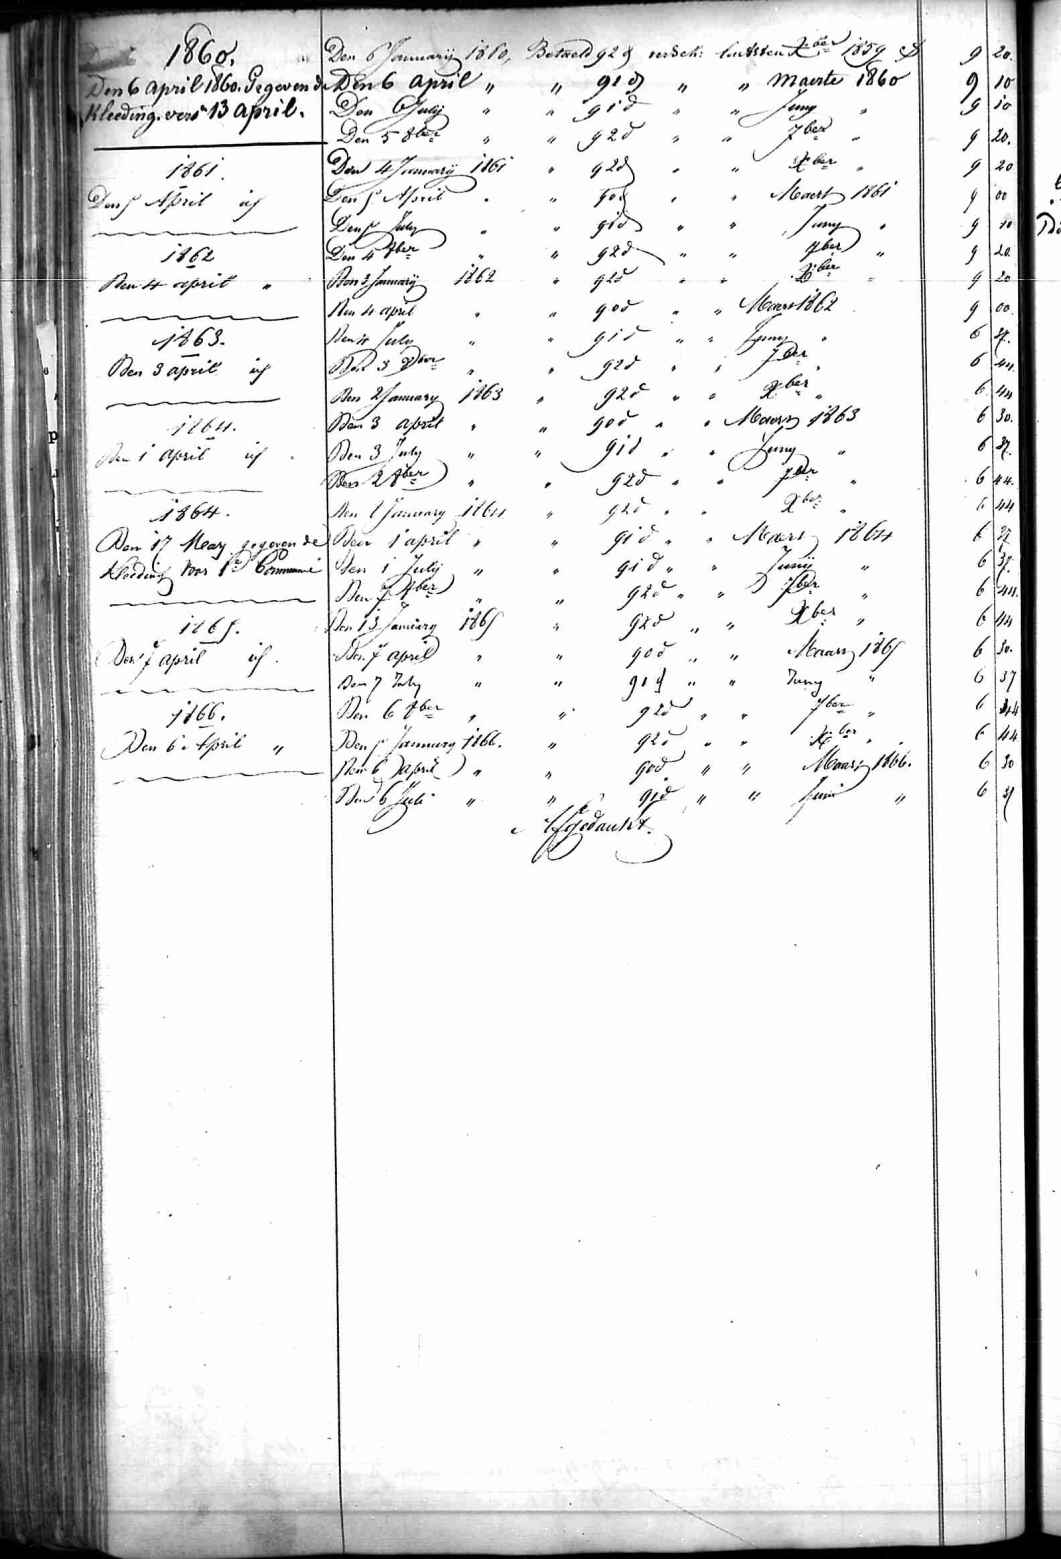 1860.
Den 6 April 1860. Gegeven de
Kleeding. vers 13 April.
1861.
Den 5 April id
1862
Den 4 april "
1863.
Den 3 april id
1864.
Den 1 april id
1864.
Den 17 Mey gegeven de
Kleeding voor 1e Communie
1865.
Den 7 april id.
1866.
Den 6 April "
Den 6 Januarij 1860, Betaeld 92 d versch: laetsten Xber 1859 9 20.
Den 6 April " " 91 d " " Maerte 1860 9 10
Den 6 July " " 91 d " " Juny " 9 10
Den 5 8ber " " 92 d " " 7ber " 9 20.
Den 4 Januarij 1861 " 92 d " " Xber " 9 20
Den 5 April " " 90 d " " Maert 1861 9 00
Den 5 July " " 91 d " " Juny " 9 10
Den 4 8ber " " 92 d " " 7ber " 9 20.
Den 3 Januarij 1862 " 92 d " " Xber " 9 20
Den 4 april " " 90 d " " Maert 1862 9 00.
Den 4 July " " 91 d " " Juny " 6 37.
Den 3 8ber " " 92 d " " 7ber " 6 44.
Den 2 January 1863 " 92 d " " Xber " 6 44
Den 3 april " " 90 d " " Maert 1863 6 30.
Den 3 July " " 91 d " " Juny " 6 37.
Den 2 8ber " " 92 d " " 7ber " 6 44.
Den 1 January 1864 92 d " " Xber " 6 44
Den 1 april " " 91 d " " Maert 1864 6 37
Den 1 July " " 91 d " " Junij " 6 37.
Den 7 8ber " " 92 d " " 7ber " 6 44.
Den 13 January 1865 " 92 d " " Xber " 6 44
Den 7 april " " 90 d " " Maart 1865 6 30.
Den 7 July " " 91 d " " Juny " 6 37
Den 6 8ber " " 92 d " " 7ber " 6 44
Den 5 January 1866. " 92 d " " Xber " 6 44
Den 6 April " " 90 d " " Maart 1866. 6 30
Den 6 Juli " " 91 d " " Juni " 6 37
Afgedankt.